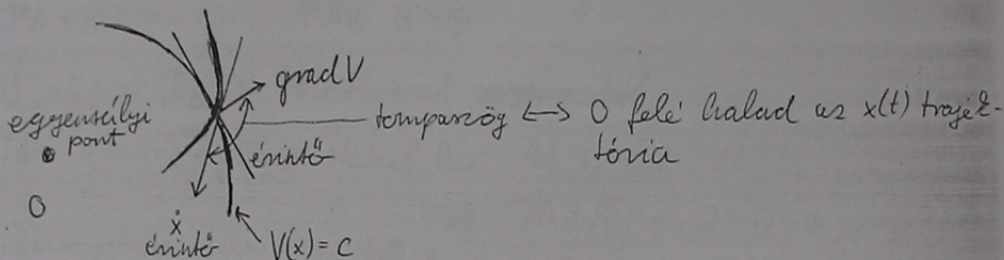 grad V
egyensúlyi
pont
tompaszög ⟷ 0 felé halad az x(t) trajek
tória
érintő
0
ẋ
érintő
V(x) = c